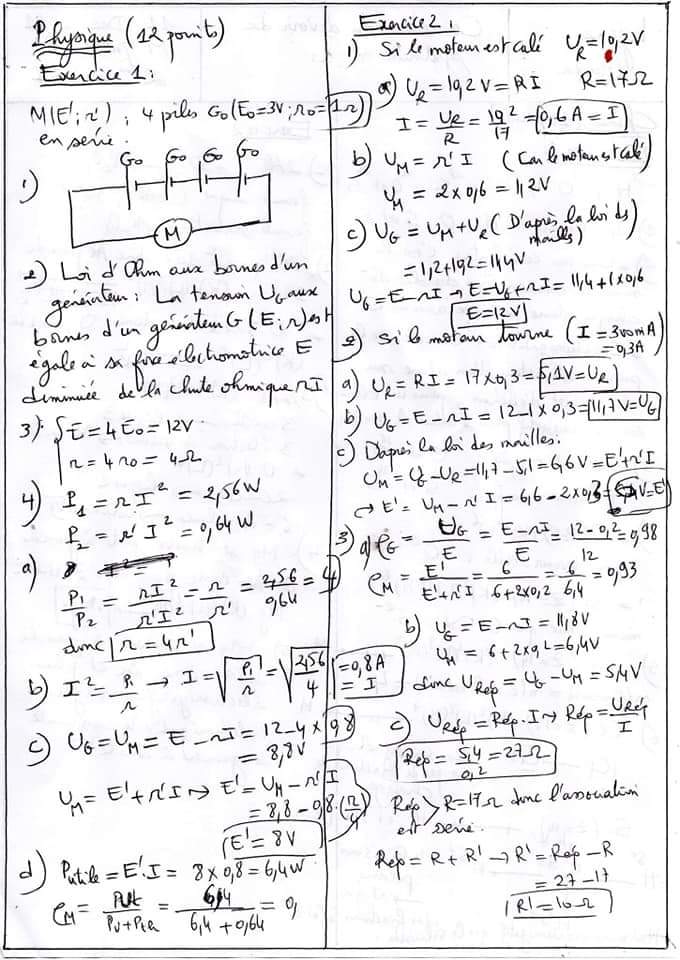 Physique (12 points)
Exercice 1:
M(E';r') ; 4 piles G0(E0=3V; r0=1Ω)
en série.
G0 G0 G0 G0
1)
M
2) Loi d'Ohm aux bornes d'un
générateur: La tension UG aux
bornes d'un générateur G(E;r) est
égale à sa force électromotrice E
diminuée de la chute ohmique rI
3) {E=4E0=12V
r=4r0=4Ω
4) P1=r.I²=2,56W
P2=r'I²=0,64W
a)
P1/P2 = rI²/r'I² = r/r' = 2,56/0,64 = 4
donc r=4r'
b) I²=P1/r → I=√(P1/r)=√(2,56/4)=0,8A
=I
c) UG=UM=E-rI=12-4×0,8
=8,8V
UM=E'+r'I → E'=UM-r'I
=8,8-0,8.(r/4)
E'=8V
d) Putile=E'.I=8×0,8=6,4W
ρM=Pu/(Pu+Pth)=6,4/(6,4+0,64)=0,
Exercice 2:
1) Si le moteur est calé UR=10,2V
a) UR=10,2V=RI R=17Ω
I=UR/R=10,2/17=0,6A=I
b) UM=r'I (Car le moteur est calé)
UM=2×0,6=1,2V
c) UG=UM+UR (D'après la loi des
mailles)
=1,2+10,2=11,4V
UG=E-rI → E=UG+rI=11,4+1×0,6
E=12V
2) Si le moteur tourne (I=300mA)
=0,3A
a) UR=RI=17×0,3=5,1V=UR
b) UG=E-rI=12-1×0,3=11,7V=UG
c) D'après la loi des mailles:
UM=UG-UR=11,7-5,1=6,6V=E'+r'I
→ E'=UM-r'I=6,6-2×0,3= V=E'
3) a) ρG=UG/E=(E-rI)/E=(12-0,2)/12=0,98
ρM=E'/(E'+r'I)=6/(6+2×0,2)=6/6,4=0,93
b) UG=E-rI=11,8V
UM=6+2×0,2=6,4V
donc URép=UG-UM=5,4V
c) URép=Rép.I → Rép=URép/I
Rép=5,4/0,2=27Ω
Rép>R=17Ω donc l'association
est série.
Rép=R+R' → R'=Rép-R
=27-17
R'=10Ω